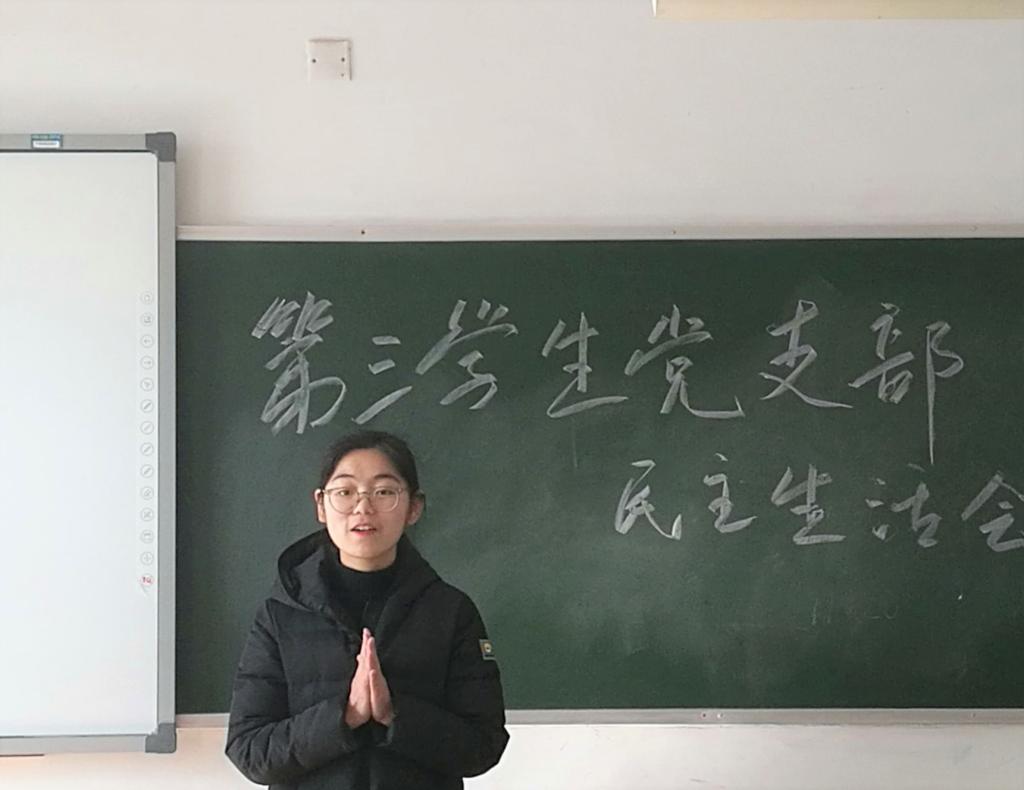 第三学生党支部
民主生活会